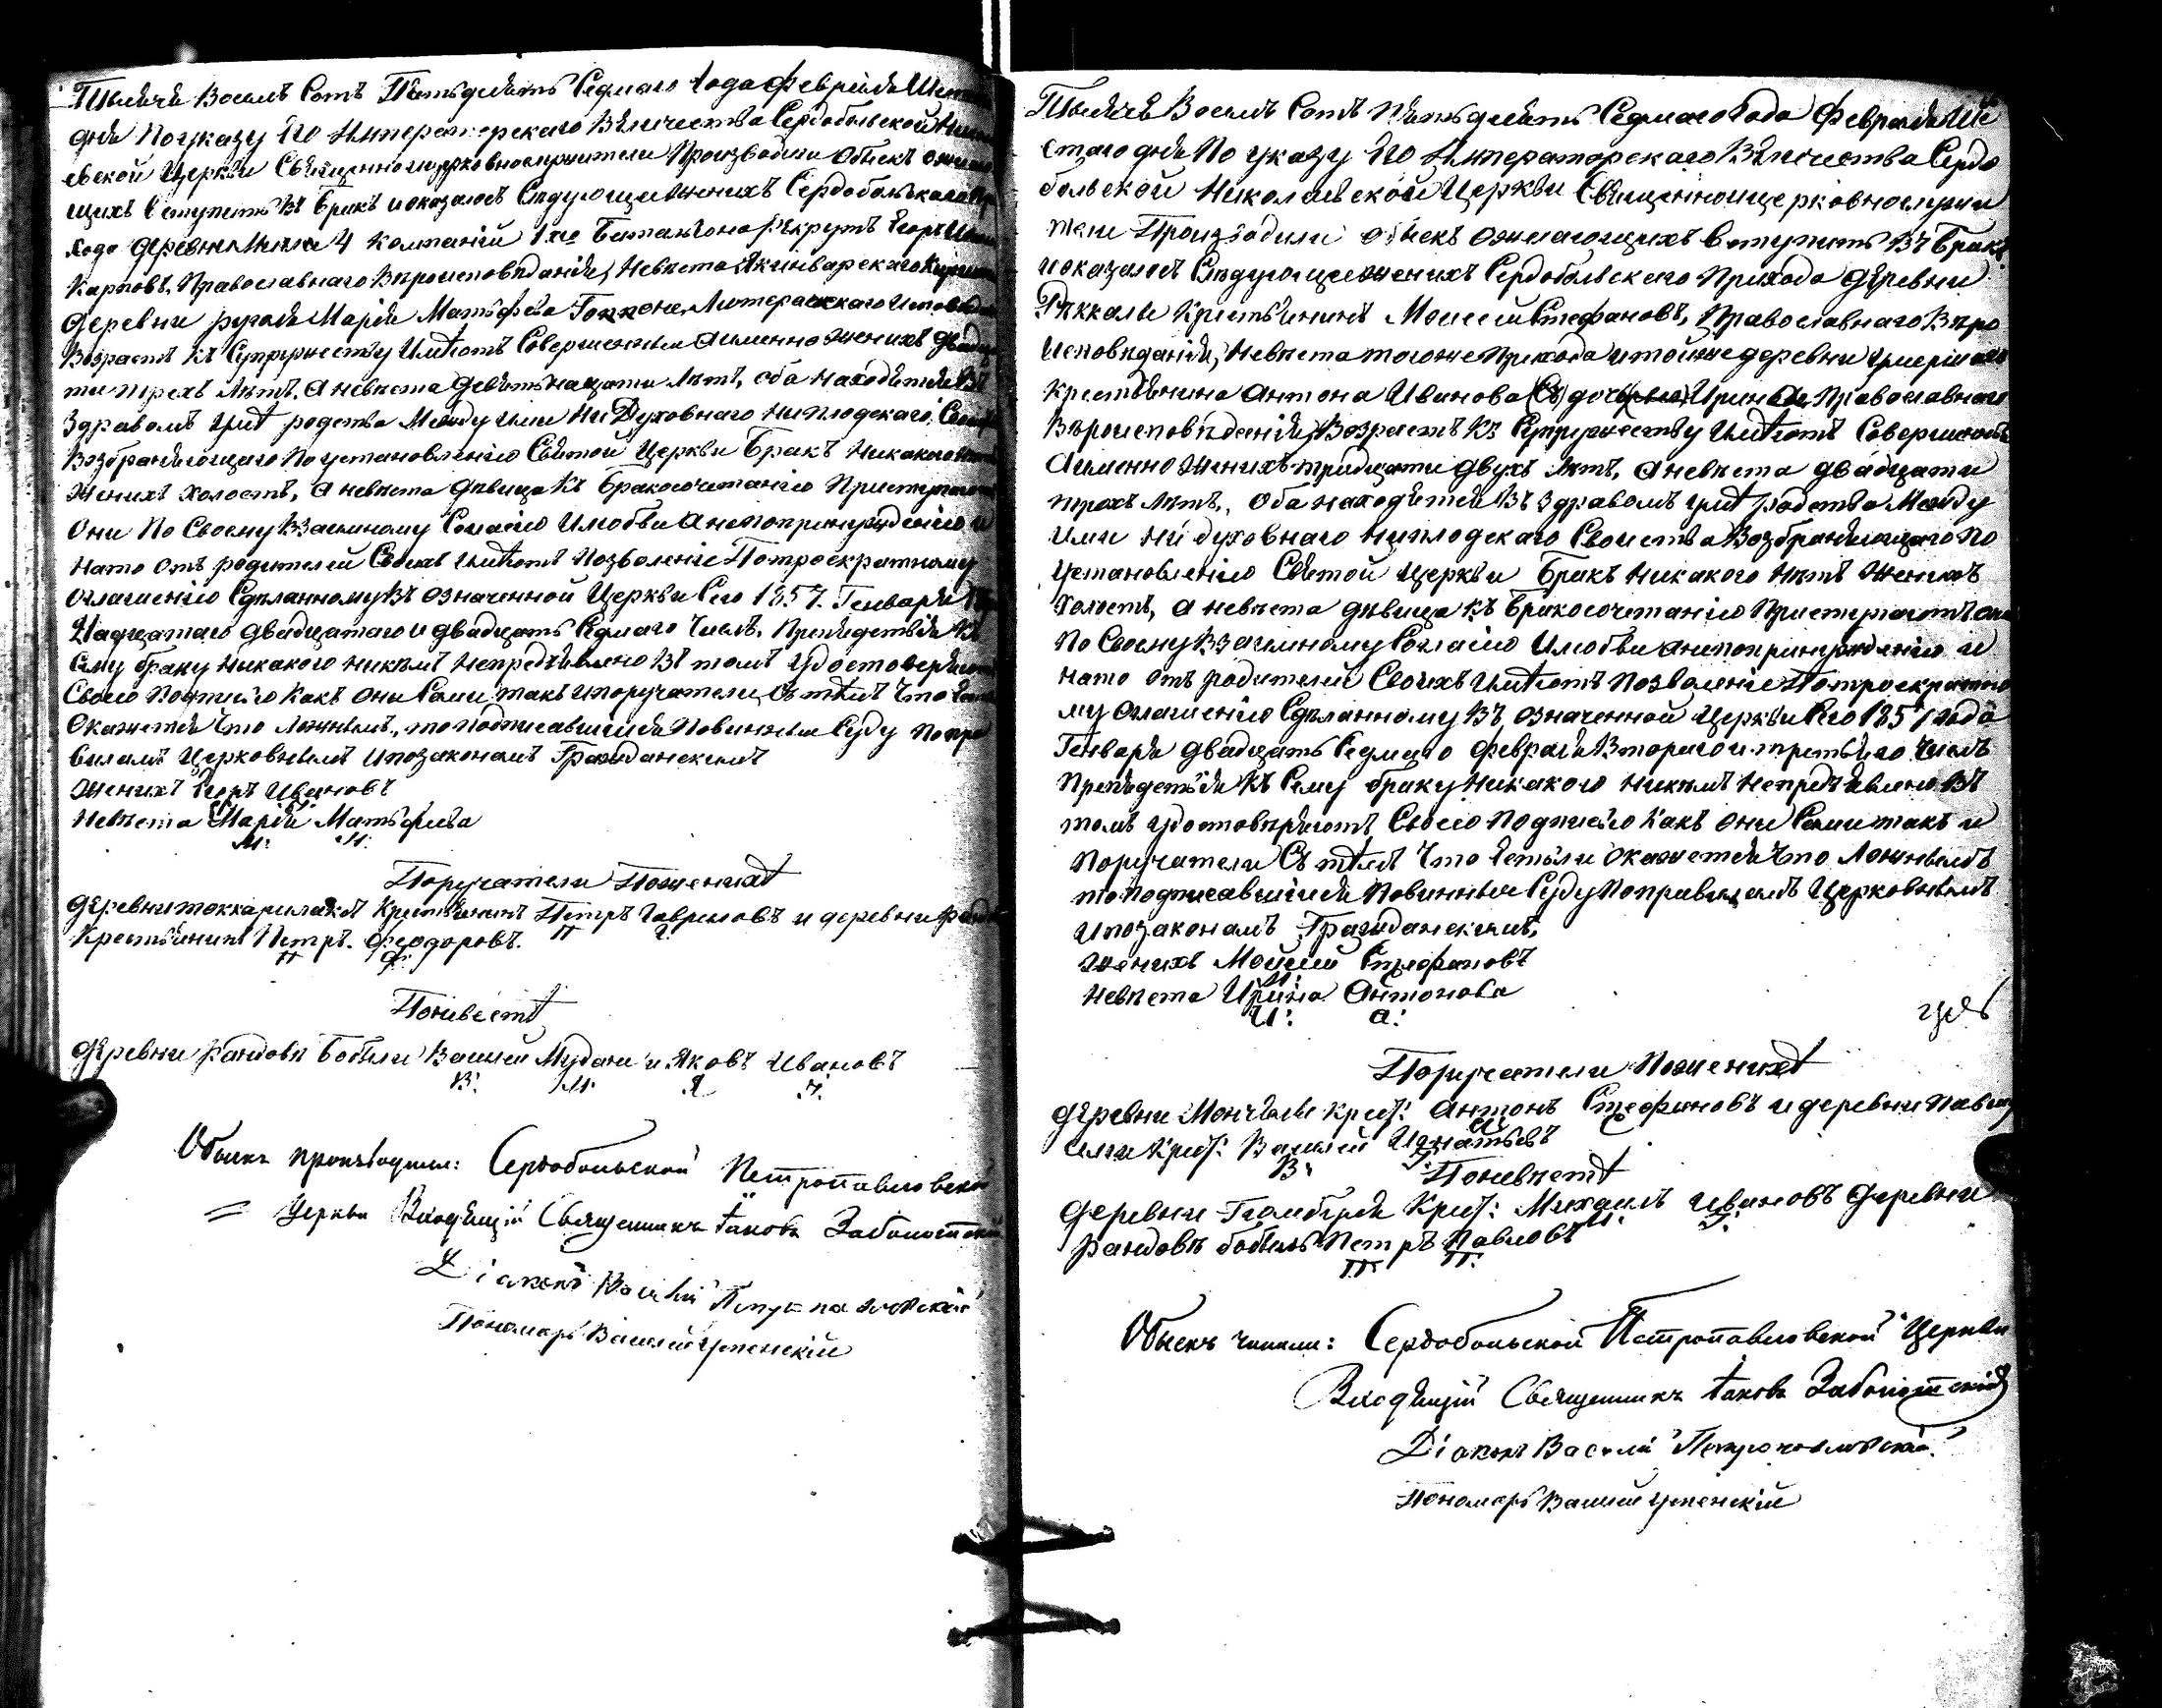 Тысяча Восемъ Сотъ Пятьдесятъ Седмаго Года Февраля
дня По указу Его Императорскаго Величества Сердобольской
евской Церкви Священноицерковнослужители Производили Обыскъ
щихъ Вступить въ Бракъ и оказалось Следующее Женихъ Сердобольскаго
хода деревни 4 Компаніи 1го Баталіона Рекрутъ Егоръ
Карповъ, Православнаго Вѣроисповѣданія, Невѣста Якимварскаго
деревни Марія Матвѣева Лютеранскаго
Возрастъ къ Супружеству Имѣютъ Совершенный Аименно Женихъ
ти трехъ Лѣтъ, а невѣста девятьнацати Лѣтъ, оба находятся
Здравомъ умѣ родства Между ими Ни Духовнаго ни плодскаго
Возбраняющаго По установленію Святой Церкви Бракъ Никакого
Женихъ холостъ, а невѣста дѣвица къ Бракосочетанію
Они По Своему Взаимному Согласію Илюбви анепопринужденію и
Нато отъ родителей Своихъ имѣютъ Позволеніе Потроекратному
оглашенію Сделанному Въ означенной Церкви Сего 1857. Генваря
Надцатаго двадцатаго и двадцать Седмаго Числъ. Препядствія
Сему браку Никакого Никѣмъ Непредъявлено Въ томъ
Своею Подписью Какъ Они Сами такъ и поручатели, Съ тѣмъ Что
Окажется Что Ложнымъ, то подписавшіися Повинны Суду
виламъ Церковнымъ ипозаконамъ Гражданскимъ
Женихъ Егоръ Ивановъ
Невѣста Марія Матвѣева
М: М:
Поручатели Поженихѣ
деревни Крестьянинъ Петръ Гавриловъ и деревни
П Г:
Крестьянинъ Петръ. Феодоровъ.
П Ф:
Поневестѣ
деревни Бобыли Василей и Яковъ Ивановъ
В: М: Я І:
Обыскъ производили: Сердобольской
Церкви Священникъ Іаковъ
Діаконъ Василій
Пономарь Василей Успенскій
Тысяча Восемъ Сотъ Пятьдесятъ Седмаго Года Февраля Ше
стаго дня По указу Его Императорскаго Величества Сердо
больской Николаевской Церкви Священноицерковнослужи
тели Производили обыскъ ожелающихъ Вступить Въ Бракъ
и оказалось Следующее женихъ Сердобольскаго Прихода деревни
Крестьянинъ Моисей Стефановъ, Православнаго Вѣро
исповѣданія, Невѣста тогоже Прихода итойже деревни умершаго
крестьянина Антона Иванова Православнаго
Вѣроисповѣданія, Возрастъ къ Супружеству Имѣютъ Совершенный
Аименно Женихъ тридцати двухъ Лѣтъ, а невѣста двадцати
трехъ Лѣтъ, Оба находятся Въ здравомъ умѣ родства Между
ими ни духовнаго ни плодскаго Свойства Возбраняющаго По
установленію Святой Церкви Бракъ Никакого Нѣтъ Женихъ
Холостъ, а невѣста дѣвица къ Бракосочетанію Приступаютъ они
По Своему Взаимному Согласію Илюбви анепопринужденію и
Нато отъ родителей Своихъ имѣютъ Позволеніе Потроекратно
му оглашенію Сдѣланному Въ означенной Церкви Сего 1857 года
Генваря двадцать Седмаго Февраля Втораго и третьяго Числъ
Препядствія Къ Сему браку Никакого Никѣмъ Непредъявлено Въ
томъ удостовѣряютъ Своею Подписью Какъ Они Сами такъ и
Поручатели Съ тѣмъ Что Естьли окажется Что Ложнымъ
то подписавшіися Повинны Суду Поправиламъ Церковнымъ
ипозаконамъ Гражданскимъ,
Женихъ Мойсей Стефановъ
М:
Невѣста Ирина Антонова
И: А:
Поручатели Поженихѣ
деревни крест: Антонъ Стефановъ и деревни
крест: Василей Игнатьевъ
В: І:
Поневѣстѣ
Деревни Крест: Михаилъ Ивановъ Деревни
М: І:
бобыль Петръ Павловъ
П: П:
Обыскъ чинили: Сердобольской Петропавловской Церкви
Священникъ Іаковъ
Діаконъ Василій
Пономарь Василей Успенскій